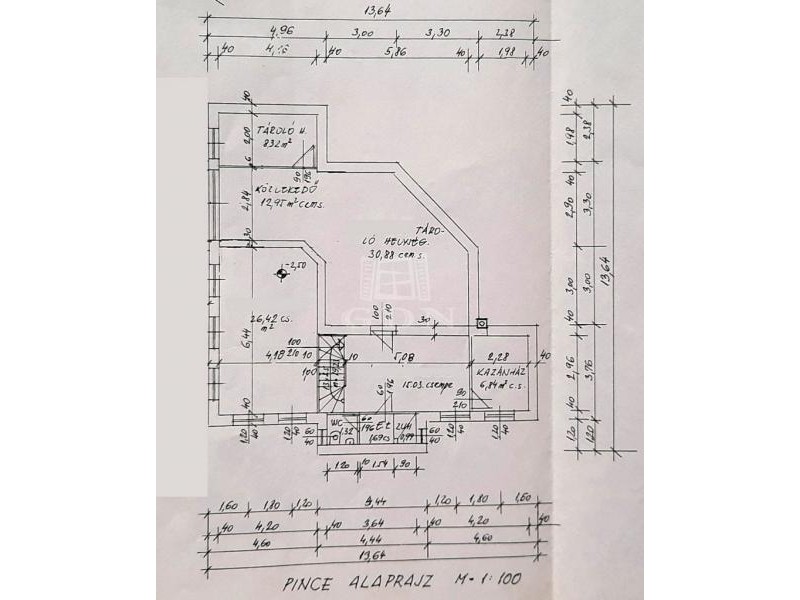 13,64
4,96 3,00 3,30 2,38
40 40 5,86 40 1,98 40
40
TÁROLÓ H.
8,32 m²
2,00
6
90
196
KÖZLEKEDŐ
12,95 m² cem s.
2,84
30
TÁRO-
LÓ HELYSÉG.
30,88 cem s.
-2,50
26,42 cs.
m²
6,44
100
210
30
100
210
4,18 10 10 5,08 2,28 40
100
KAZÁNHÁZ
6,84 m² c.s.
15.03 csempe
60
196
90
210
WC
1.32
60
196
ZUH
0,99
40
40
120
40
120
40
60
40
60
40
120
40
120
40
1.20 10 1.54 90
1,60 1,80 1,20 5,44 1,20 1,80 1,60
40 4,20 40 3,64 40 4,20 40
4,60 4,44 4,60
13,64
40
1,98 2,38
40
2,90 3,30
40
3,00 3,00
13,64
40
2,96 3,76
40
1,20 1,20
GDN
PINCE ALAPRAJZ M=1:100